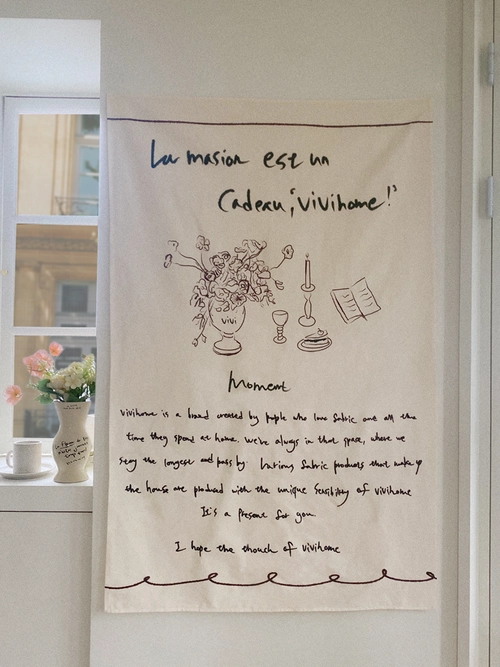 La masion est un
Cadeau, "vivihome!"
vivi
Moment
vivihome is a brand created by people who love fabric and all the
time they spend at home. We're always in that space, where we
stay the longest and pass by. Various fabric products that make up
the house are produced with the unique sensibility of vivihome
It's a present for you.
I hope the touch of vivihome